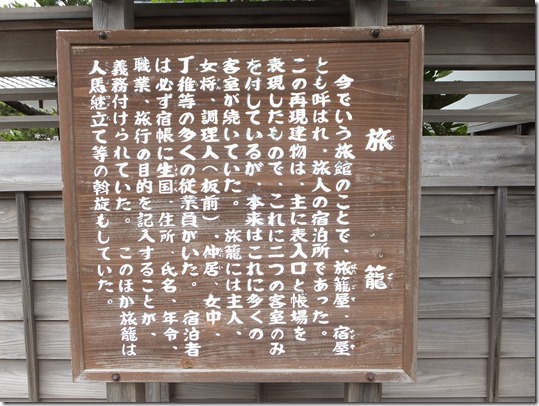 旅籠
今でいう旅館のことで、旅籠屋、宿屋
とも呼ばれ、旅人の宿泊所であった。
この再現建物は、主に表入口と帳場を
表現したもので、これに二つの客室のみ
を付しているが、本来はこれに多くの
客室が続いていた。 旅籠には主人、
女将、調理人(板前)、仲居、女中、
丁稚等の多くの従業員がいた。 宿泊者
は必ず宿帳に生国、住所、氏名、年令、
職業、旅行の目的を記入することが、
義務付けられていた。 このほか旅籠は
人馬継立て等の斡旋もしていた。